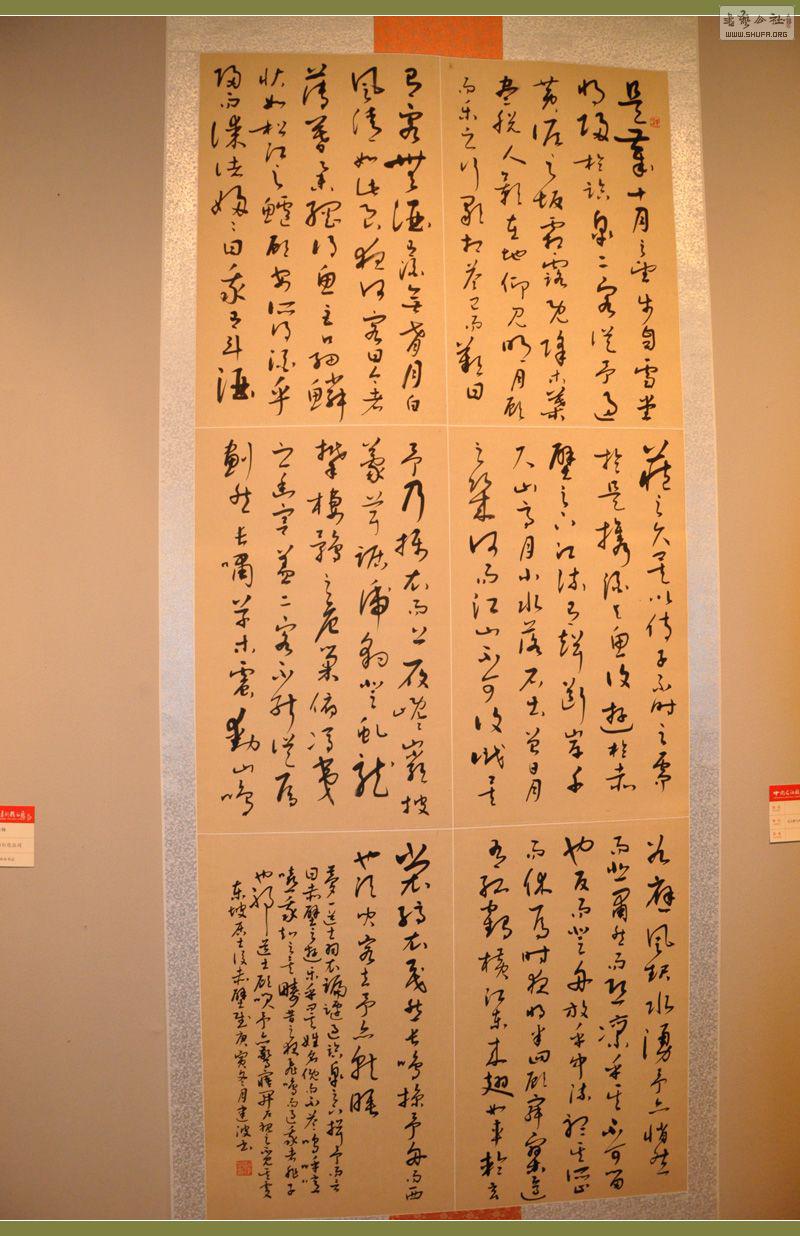 書藝公社
WWW.SHUFA.ORG
是歲十月之望步自雪堂
将歸於臨皋二客從予過
黄泥之坂霜露既降木葉
盡脱人影在地仰見明月顧
而樂之行歌相荅已而歎曰
有客無酒有酒無肴月白
風清如此良夜何客曰今者
薄暮舉網得魚巨口細鱗
狀如松江之鱸顧安所得酒乎
歸而謀諸婦婦曰我有斗酒
藏之久矣以待子不時之需
於是攜酒與魚復遊於赤
壁之下江流有聲斷岸千
尺山高月小水落石出曾日月
之幾何而江山不可復識矣
予乃攝衣而上履巉巖披
蒙茸踞虎豹登虬龍
攀棲鶻之危巢俯馮夷
之幽宫蓋二客不能從焉
劃然長嘯草木震動山鳴
谷應風起水湧予亦悄然
而悲肅然而恐凜乎其不可留
也反而登舟放乎中流聽其所止
而休焉時夜将半四顧寂寥適
有孤鶴横江東來翅如車輪玄
裳縞衣戛然長鳴掠予舟而西
也須臾客去予亦就睡
夢一道士羽衣蹁躚過臨皋之下揖予而言
曰赤壁之遊樂乎問其姓名俛而不荅嗚呼噫
嘻我知之矣疇昔之夜飛鳴而過我者非子
也耶道士顧笑予亦驚寤開户視之不見其處
東坡居士後赤壁賦庚寅冬月建波書